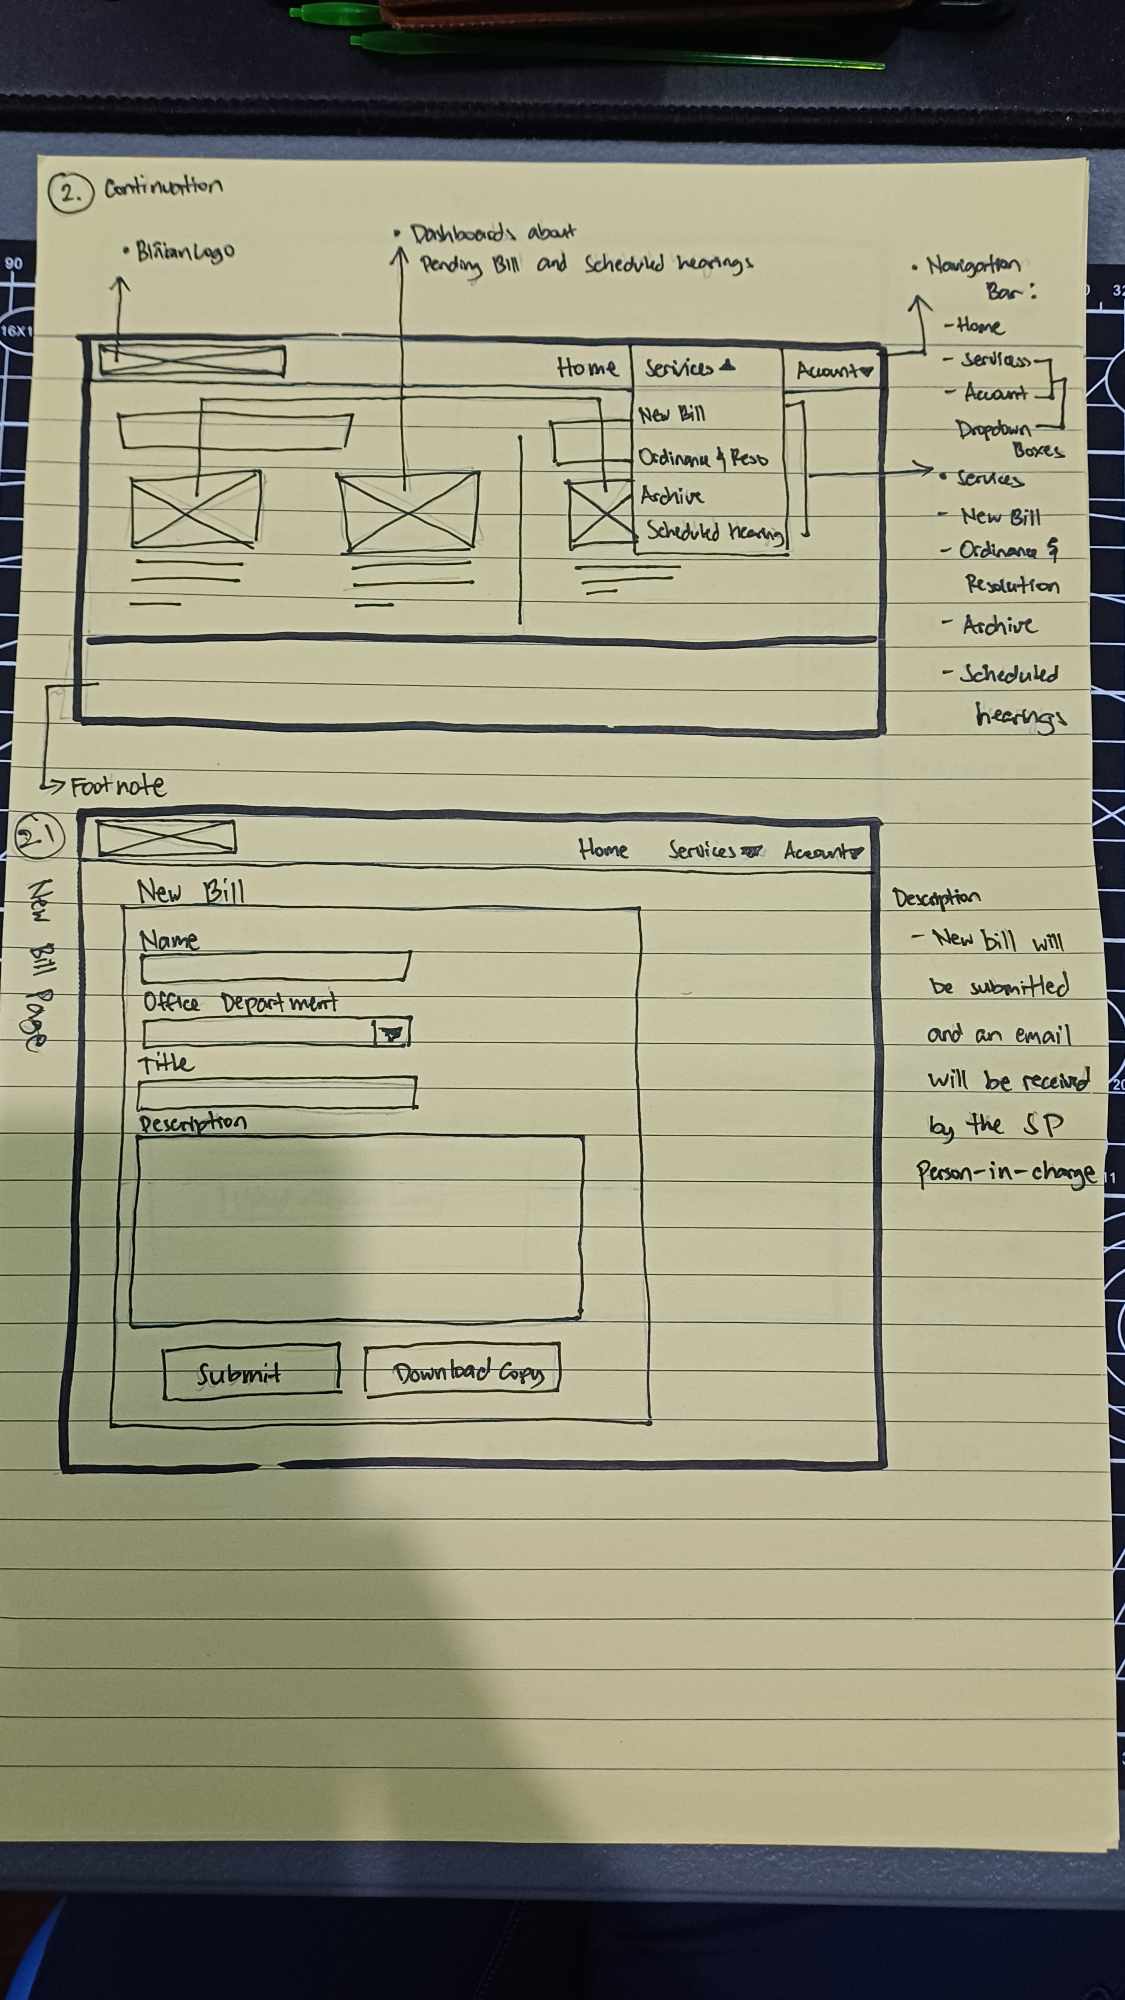 2. Continuation
• Biñan Logo
• Dashboards about
Pending Bill and Scheduled hearings
• Navigation
Bar:
- Home
- Services
- Account
Dropdown
Boxes
• Services
- New Bill
- Ordinance &
Resolution
- Archive
- Scheduled
hearings
Home Services Account
New Bill
Ordinance & Reso
Archive
Scheduled hearing
Footnote
2.1
New Bill Page
Home Services Account
New Bill
Name
Office Department
Title
Description
Submit Download Copy
Description
- New bill will
be submitted
and an email
will be received
by the SP
Person-in-charge
90
16X1
11